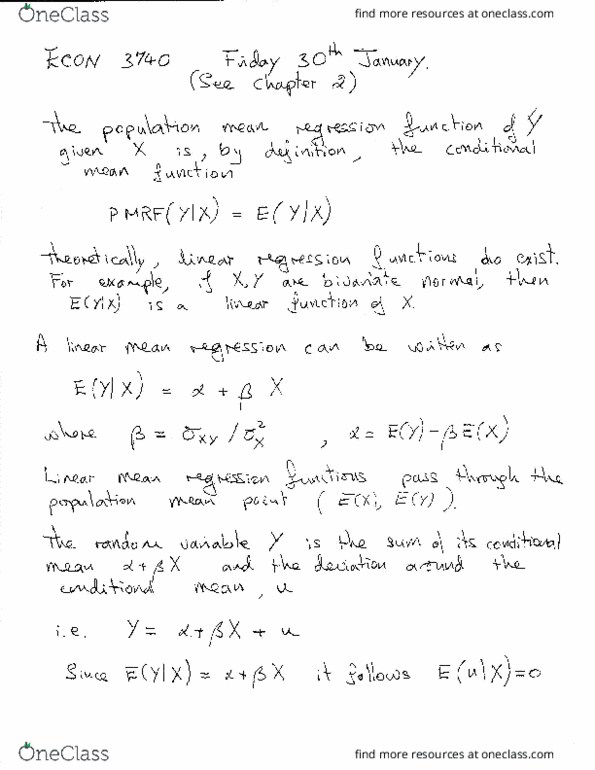 OneClass
find more resources at oneclass.com
ECON 3740 Friday 30th January.
(See chapter 2)
The population mean regression function of Y
given X is, by definition, the conditional
mean function
PMRF(Y|X) = E(Y|X)
Theoretically, linear regression functions do exist.
For example, if X,Y are bivariate normal, then
E(Y|X) is a linear function of X.
A linear mean regression can be written as
E(Y|X) = α + β X
where β = σXY / σX² , α = E(Y) - βE(X)
Linear mean regression functions pass through the
population mean point (E(X), E(Y)).
The random variable Y is the sum of its conditional
mean α+βX and the deviation around the
conditional mean, u
i.e. Y = α+βX + u
Since E(Y|X) = α+βX it follows E(u|X)=0
OneClass
find more resources at oneclass.com